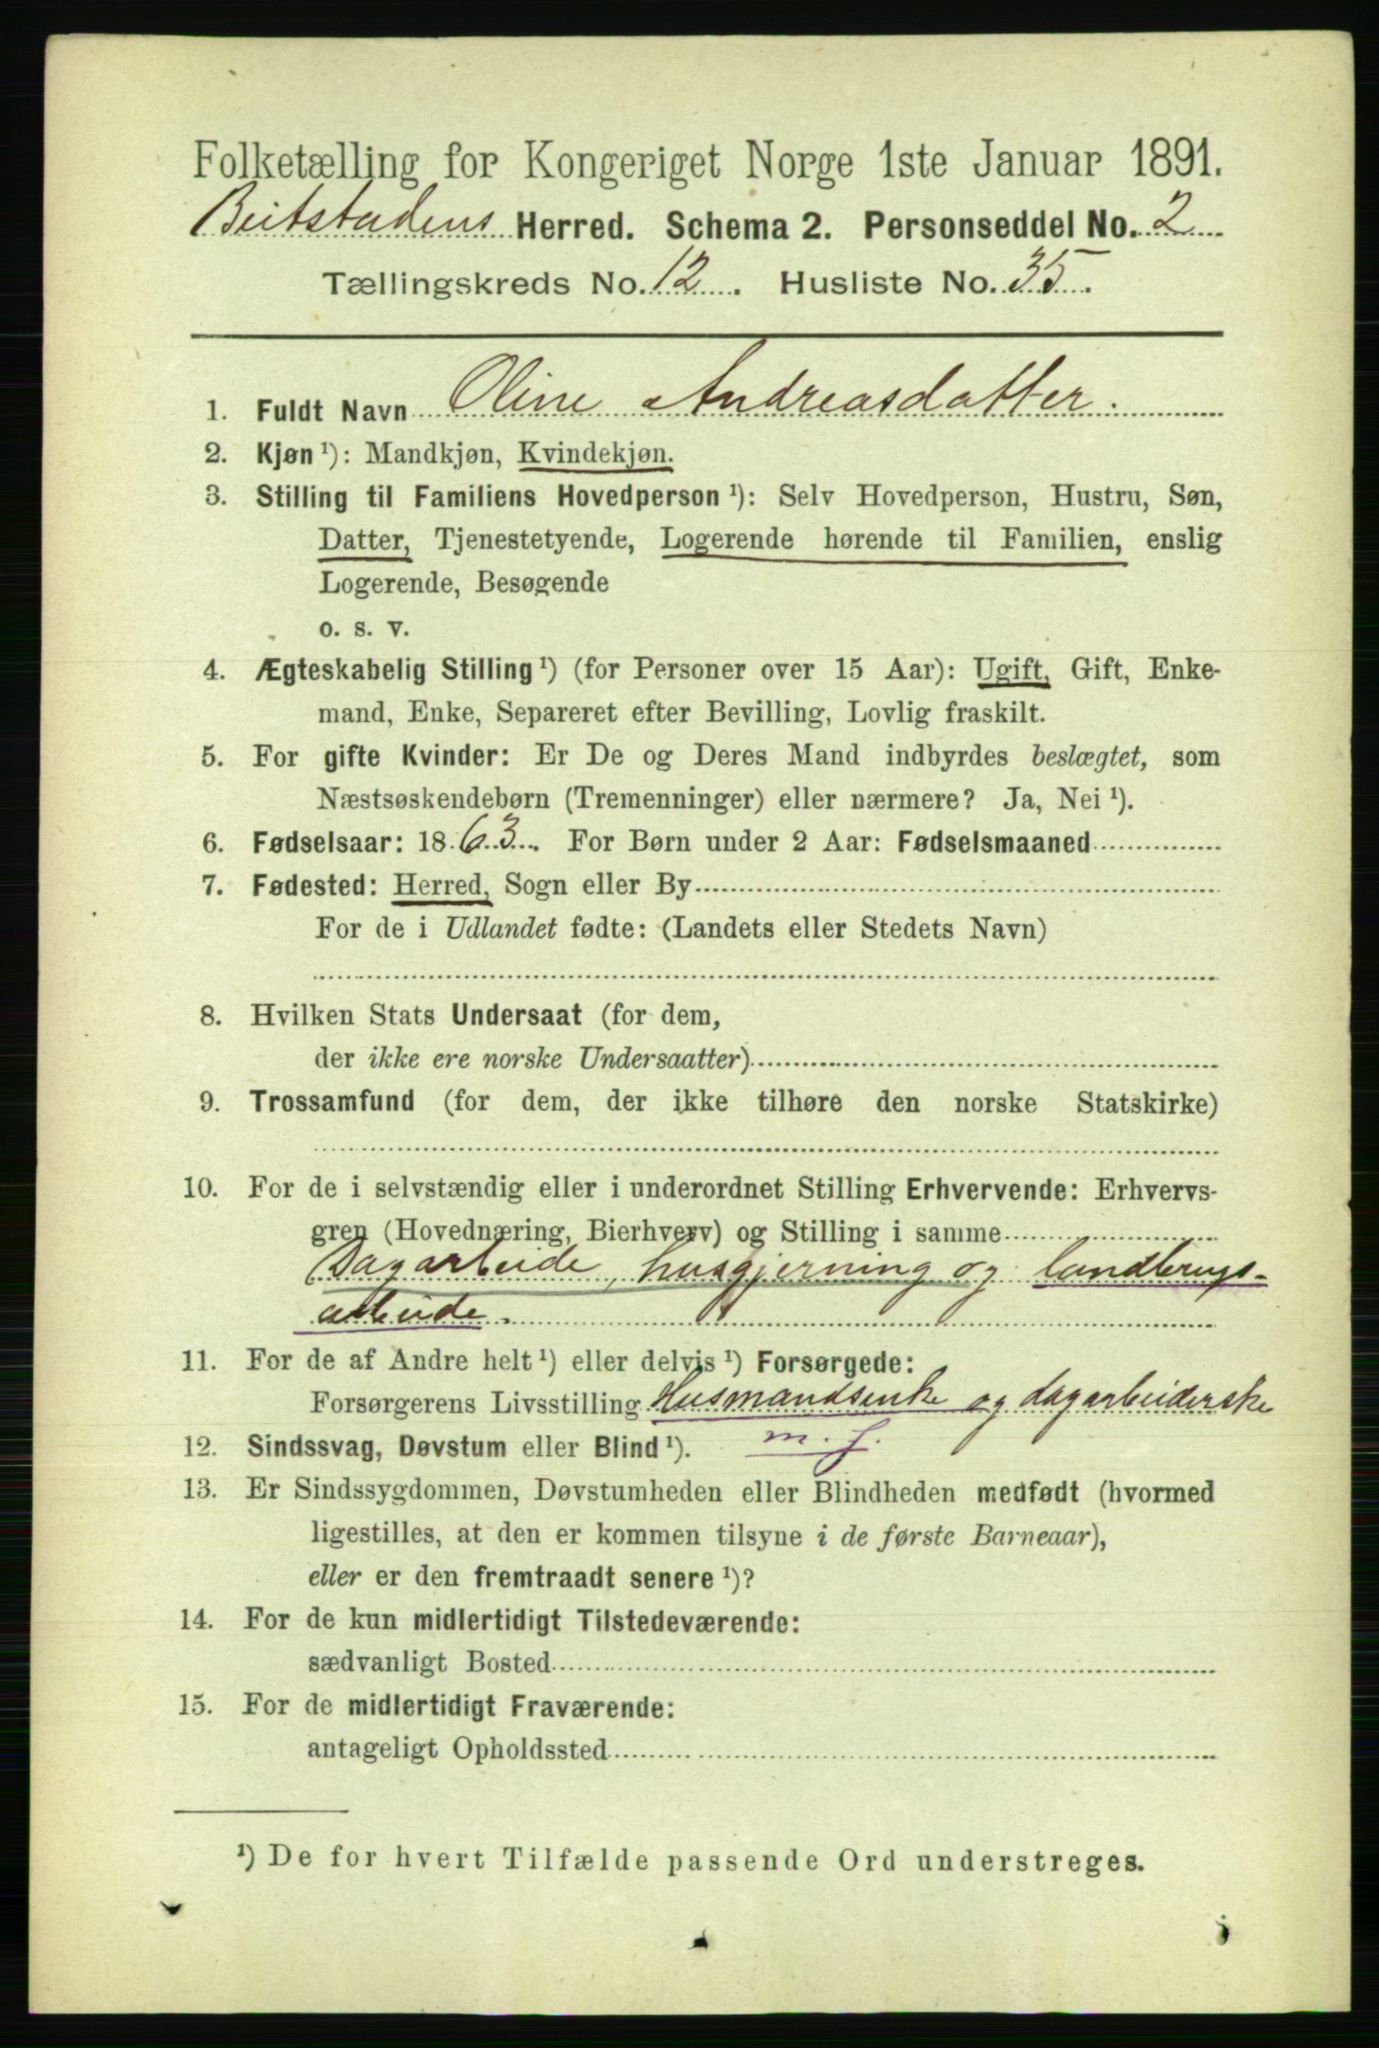 Folketælling for Kongeriget Norge 1ste Januar 1891.
Beitstadens Herred. Schema 2. Personseddel No. 2
Tællingskreds No. 12. Husliste No. 35.
1. Fuldt Navn Oline Andreasdatter.
2. Kjøn ¹): Mandkjøn, Kvindekjøn.
3. Stilling til Familiens Hovedperson ¹): Selv Hovedperson, Hustru, Søn,
Datter, Tjenestetyende, Logerende hørende til Familien, enslig
Logerende, Besøgende
o. s. v.
4. Ægteskabelig Stilling ¹) (for Personer over 15 Aar): Ugift, Gift, Enke-
mand, Enke, Separeret efter Bevilling, Lovlig fraskilt.
5. For gifte Kvinder: Er De og Deres Mand indbyrdes beslægtet, som
Næstsøskendebørn (Tremenninger) eller nærmere? Ja, Nei ¹).
6. Fødselsaar: 1863. For Børn under 2 Aar: Fødselsmaaned
7. Fødested: Herred, Sogn eller By
For de i Udlandet fødte: (Landets eller Stedets Navn)
8. Hvilken Stats Undersaat (for dem,
der ikke ere norske Undersaatter)
9. Trossamfund (for dem, der ikke tilhøre den norske Statskirke)
10. For de i selvstændig eller i underordnet Stilling Erhvervende: Erhvervs-
gren (Hovednæring, Bierhverv) og Stilling i samme
Dagarbeide, husgjerning og landbrugs-
arbeide.
11. For de af Andre helt ¹) eller delvis ¹) Forsørgede:
Forsørgerens Livsstilling Husmandsenke og dagarbeiderske
12. Sindssvag, Døvstum eller Blind ¹). m. f.
13. Er Sindssygdommen, Døvstumheden eller Blindheden medfødt (hvormed
ligestilles, at den er kommen tilsyne i de første Barneaar),
eller er den fremtraadt senere ¹)?
14. For de kun midlertidigt Tilstedeværende:
sædvanligt Bosted
15. For de midlertidigt Fraværende:
antageligt Opholdssted
¹) De for hvert Tilfælde passende Ord understreges.